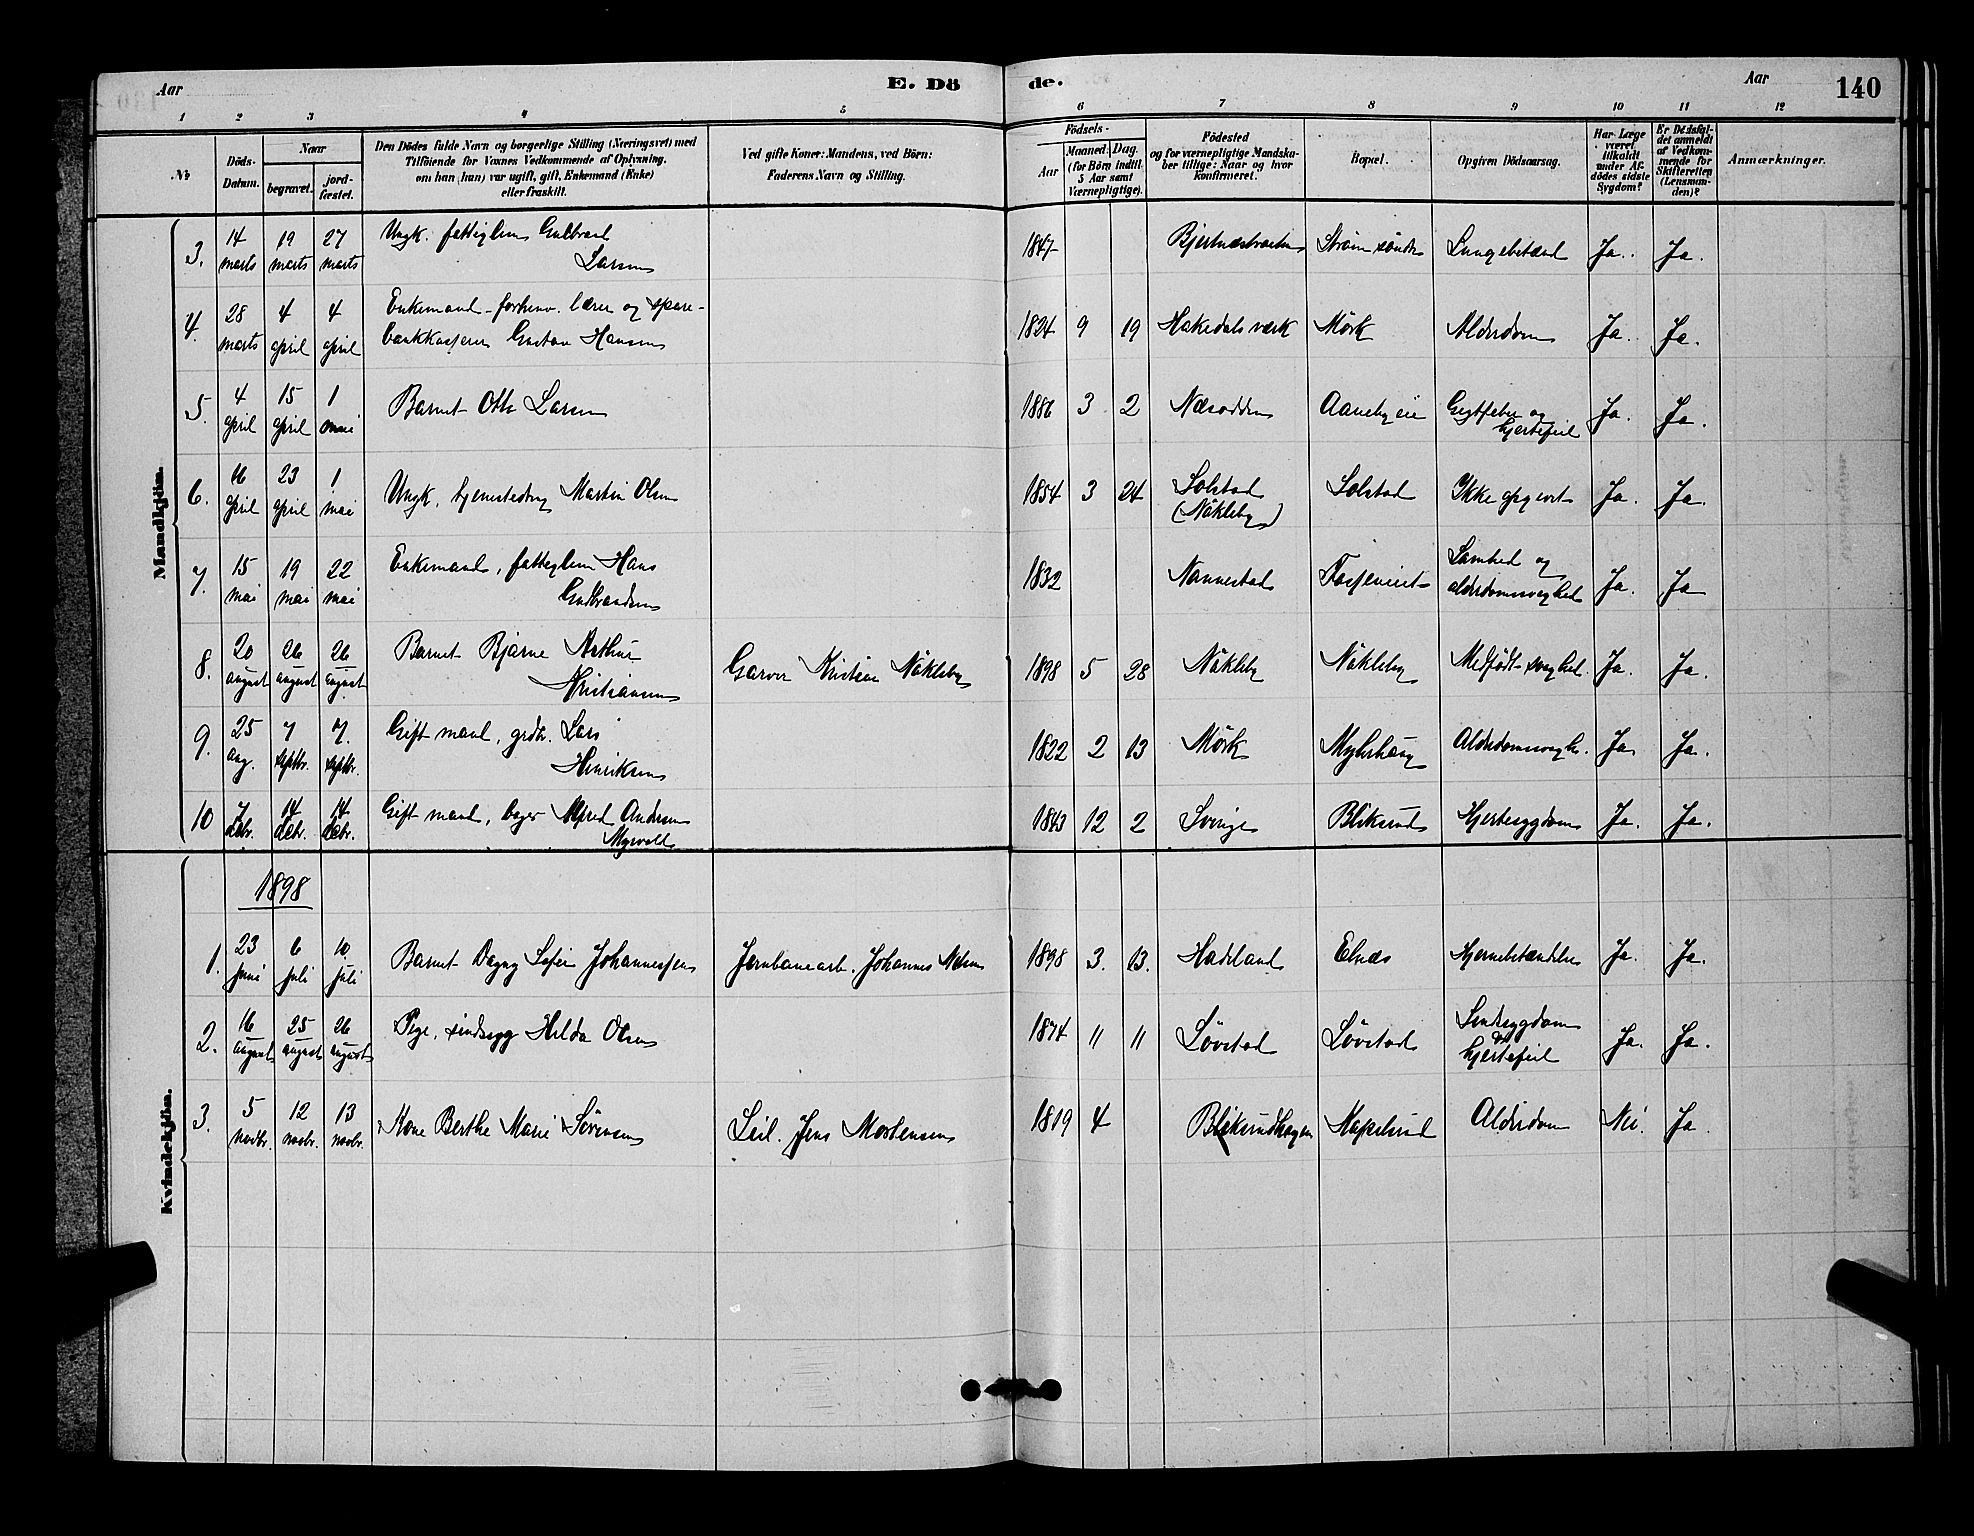 Aar E. Dö de. Aar 140
1 2 3 4 5 6 7 8 9 10 11 12
№ Döds-Datum. Naar begravet. jord-fæstet. Den Dödes fulde Navn og borgerlige Stilling (Næringsvei) med Tilföiende for Voxnes Vedkommende af Oplysning, om han (hun) var ugift, gift, Enkemand (Enke) eller fraskilt. Ved gifte Koner: Mandens, ved Börn: Faderens Navn og Stilling. Födsels- Aar Maaned. Dag. (for Börn indtil 5 Aar samt Værnepligtige). Födested og for værnepligtige Mandskaber tillige: Naar og hvor konfirmeret. Bopæl. Opgiven Dödsaarsag. Har Læge været tilkaldt under Afdödes sidste Sygdom? Er Dödsfaldet anmeldt af Vedkommende for Skifteretten (Lensmanden)? Anmærkninger.
Mandkjön.
3. 14 marts 19 marts 27 marts Ungk. fattiglem Gulbrand Larsen 1847 Strøm søndre Lungebetænd Ja. Ja.
4. 28 marts 4 april 4 april Enkemand forhenv. lærer og sparebankkasserer Gustav Hansen 1824 9 19 Hakedals værk Mörk Alderdom Ja. Ja.
5. 4 april 15 april 1 mai Barnet Otto Larsen 1886 3 2 Næsodden Aaneby eie Gigtfeber og hjertefeil Ja. Ja.
6. 16 april 23 april 1 mai Ungk. Martin Olsen 1854 3 24 Solstad (Nökleby) Solstad Ikke opgivet Ja. Ja.
7. 15 mai 19 mai 22 mai Enkemand, fattiglem Hans Gudbrandsen 1832 Nannestad Lamhed og alderdomssvaghed Ja. Ja
8. 20 august 26 august 26 august Barnet Bjarne Arthur Kristiansen Garver Kristian Nökleby 1898 5 28 Nökleby Nökleby Medfödt svaghed Ja. Ja.
9. 25 aug. 7 septbr. 7. septbr. Gift mand, grdbr. Lars Henriksen 1822 2 13 Mörk Myhrhaug Alderdomssvagh. Ja Ja.
10 7 decbr. 14 decbr. 14 decbr. Gift mand, bager Alfred Andersen Myrvold 1843 12 2 Sverige Bliksrud Hjertesygdom Ja. Ja.
Kvindekjön.
1898
1. 23 juni 6 juli 10 juli Barnet Dagny Sofie Johannessen Jernbanearb. Johannes Nilsen 1898 3. 13. Hadeland Elnæs Hjernebetændelse Ja. Ja.
2. 16 august 25 august 26 august Pige, sindssyg Hilda Olsen 1874 11 11 Lövstad Lövstad Sindssygdom og hjertefeil Ja. Ja.
3. 5 novbr. 12 novbr. 13 novbr. Kone Berthe Marie Sörensen Leil. Jens Mortensen 1819 4 Bliksrudhagen Kapelsrud Alderdom Nei. Ja